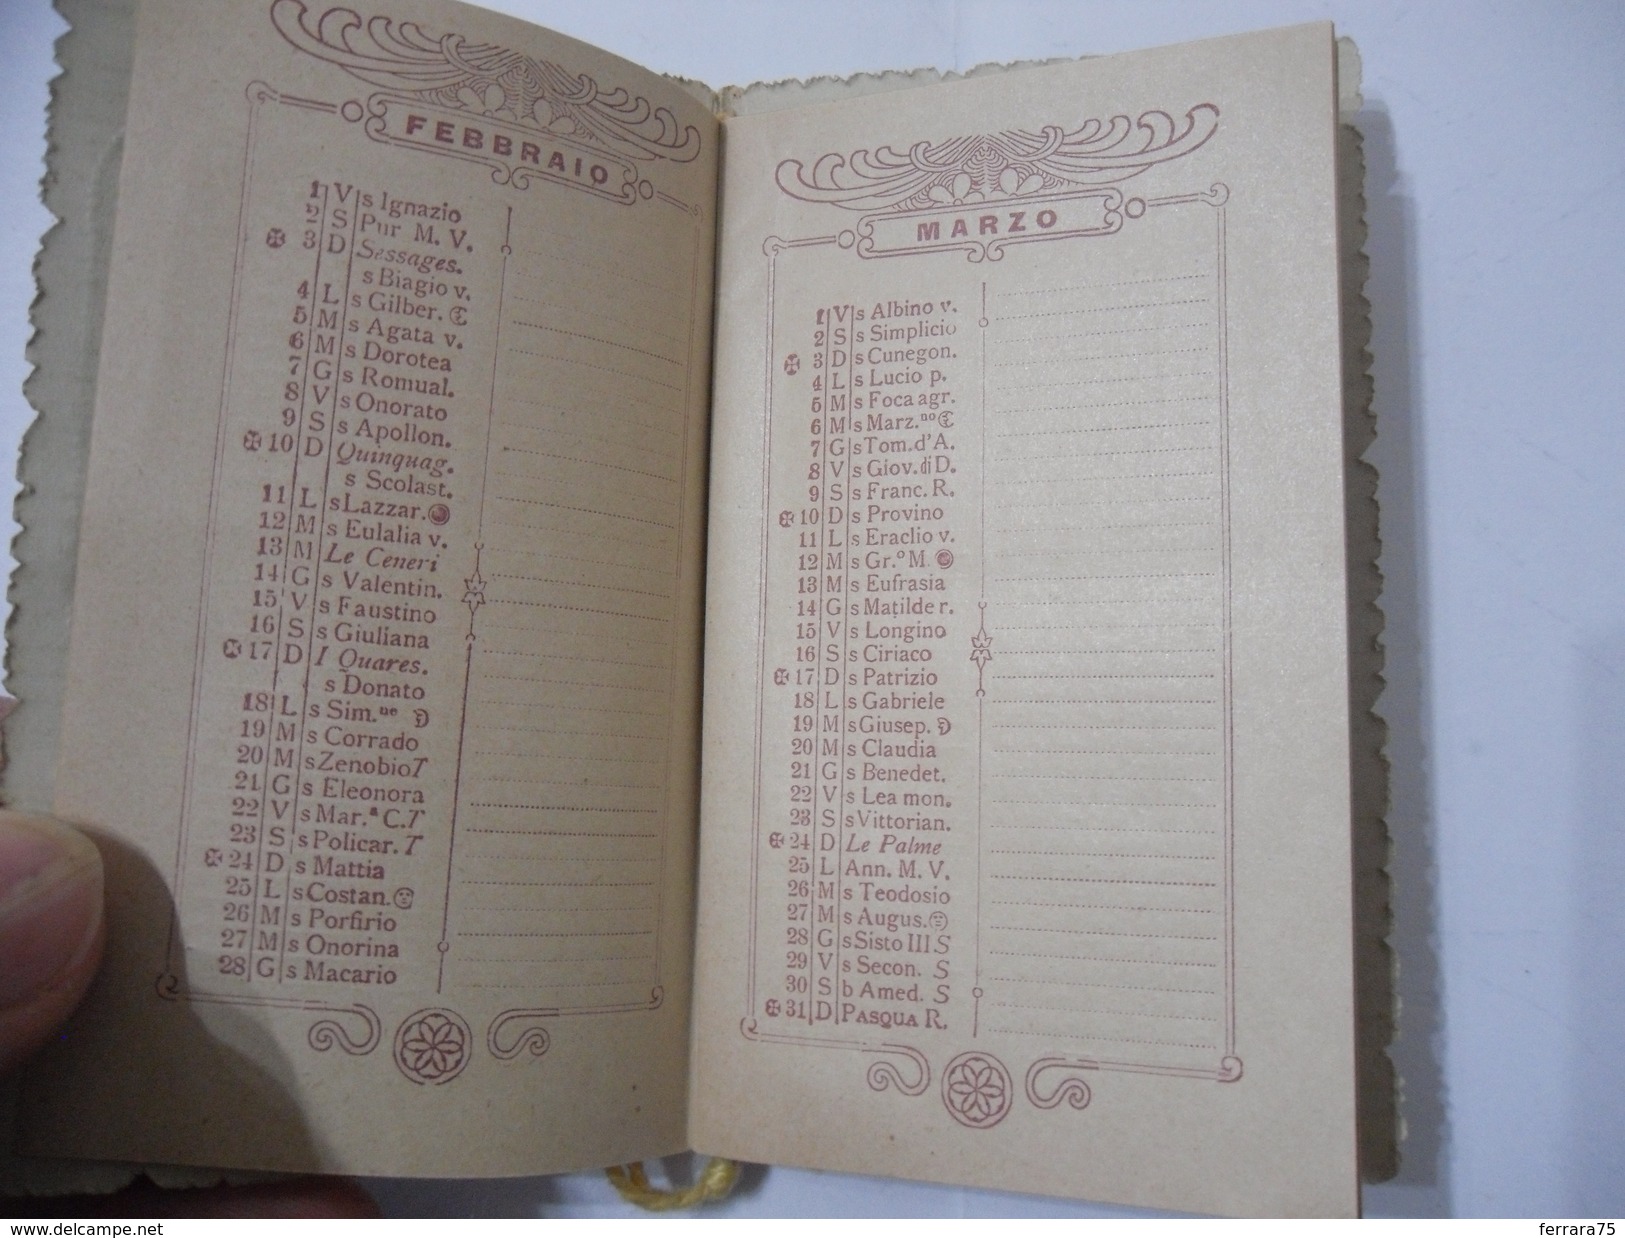 FEBBRAIO
1 V s Ignazio
2 S Pur M. V.
✠ 3 D Sessages.
s Biagio v.
4 L s Gilber. ☾
5 M s Agata v.
6 M s Dorotea
7 G s Romual.
8 V s Onorato
9 S s Apollon.
✠ 10 D Quinquag.
s Scolast.
11 L s Lazzar.
12 M s Eulalia v.
13 M Le Ceneri
14 G s Valentin.
15 V s Faustino
16 S s Giuliana
✠ 17 D I Quares.
s Donato
18 L s Sim.ne
19 M s Corrado
20 M s Zenobio T
21 G s Eleonora
22 V s Mar.a C. T
23 S s Policar. T
✠ 24 D s Mattia
25 L s Costan.
26 M s Porfirio
27 M s Onorina
28 G s Macario
MARZO
1 V s Albino v.
2 S s Simplicio
✠ 3 D s Cunegon.
4 L s Lucio p.
5 M s Foca agr.
6 M s Marz.no
7 G s Tom. d'A.
8 V s Giov. di D.
9 S s Franc. R.
✠ 10 D s Provino
11 L s Eraclio v.
12 M s Gr.o M.
13 M s Eufrasia
14 G s Matilde r.
15 V s Longino
16 S s Ciriaco
✠ 17 D s Patrizio
18 L s Gabriele
19 M s Giusep.
20 M s Claudia
21 G s Benedet.
22 V s Lea mon.
23 S s Vittorian.
✠ 24 D Le Palme
25 L Ann. M. V.
26 M s Teodosio
27 M s Augus.
28 G s Sisto III S
29 V s Secon. S
30 S b Amed. S
✠ 31 D PASQUA R.
www.delcampe.net
ferrara75